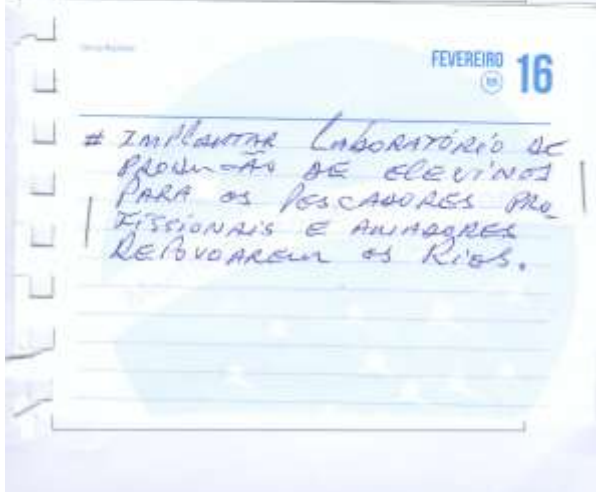 FEVEREIRO 16
# IMPLANTAR LABORATÓRIO DE
PRODUÇÃO DE ELEVINOS
PARA OS PESCADORES PRO_
FISSIONAIS E AMADORES
REPOVOAREM OS RIOS.